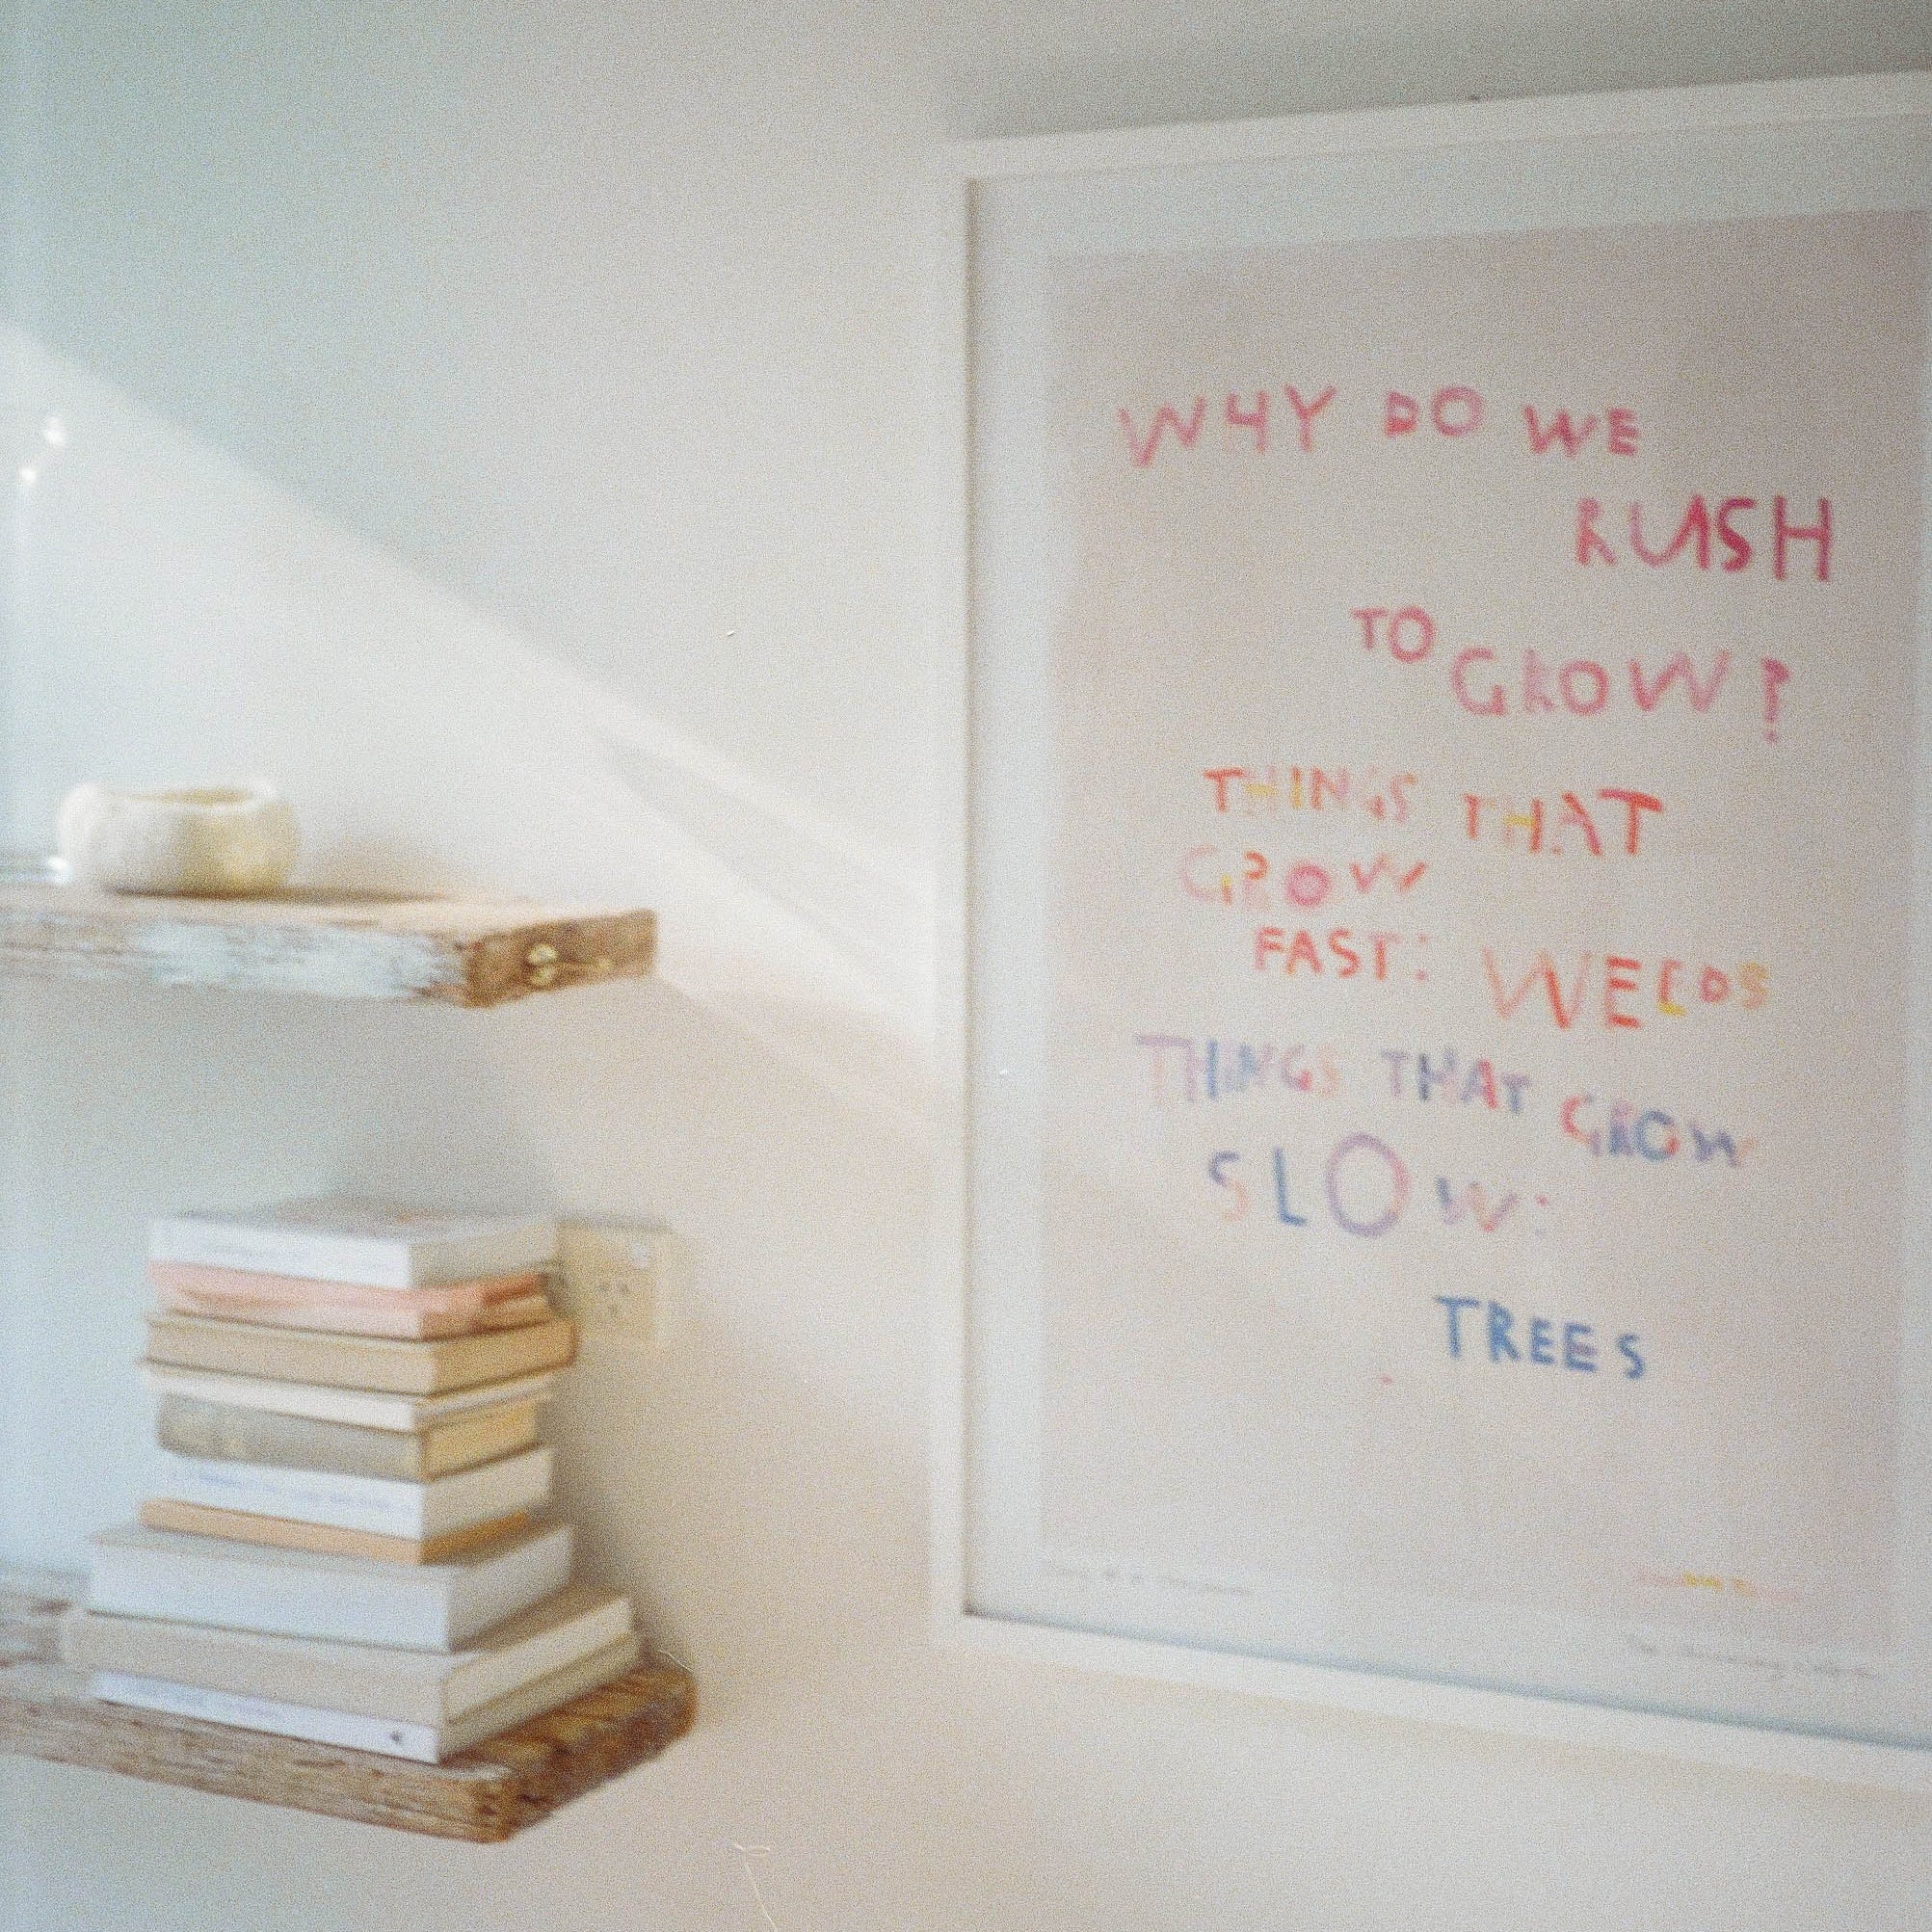 WHY DO WE
RUSH
TO GROW?
THINGS THAT
GROW
FAST: WEEDS
THINGS THAT GROW
SLOW:
TREES